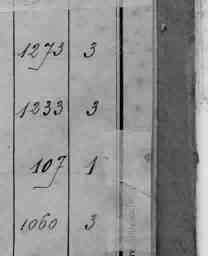 1273 3
1233 3
107 1
1060 3